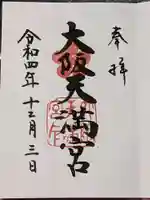 奉拝
大阪天満宮
令和四年十二月三日